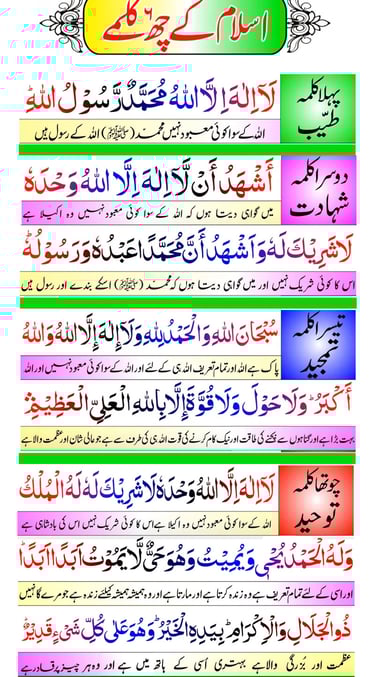 اسلام کے چھ ۶ کلمے
پہلا کلمہ
طیّب
لَا اِلٰهَ اِلَّا اللهُ مُحَمَّدٌ رَّسُوْلُ اللهِ
اللہ کے سوا کوئی معبود نہیں محمد (ﷺ) اللہ کے رسول ہیں
دوسرا کلمہ
شہادت
اَشْهَدُ اَنْ لَّا اِلٰهَ اِلَّا اللهُ وَحْدَهٗ
میں گواہی دیتا ہوں کہ اللہ کے سوا کوئی معبود نہیں وہ اکیلا ہے
لَا شَرِيْكَ لَهٗ وَاَشْهَدُ اَنَّ مُحَمَّدًا عَبْدُهٗ وَرَسُوْلُهٗ
اس کا کوئی شریک نہیں اور میں گواہی دیتا ہوں کہ محمد (ﷺ) اسکے بندے اور رسول ہیں
تیسرا کلمہ
تمجید
سُبْحَانَ اللهِ وَالْحَمْدُ لِلّٰهِ وَلَا اِلٰهَ اِلَّا اللهُ وَاللهُ
پاک ہے اللہ اور تمام تعریف اللہ ہی کے لئے اور اللہ کے سوا کوئی معبود نہیں اور اللہ
اَكْبَرُ وَلَا حَوْلَ وَلَا قُوَّةَ اِلَّا بِاللهِ الْعَلِيِّ الْعَظِيْمِ
بہت بڑا ہے اور گناہوں سے بچنے کی طاقت اور نیک کام کرنے کی قوت اللہ ہی کی طرف سے ہے جو عالی شان اور عظمت والا ہے
چوتھا کلمہ
توحید
لَا اِلٰهَ اِلَّا اللهُ وَحْدَهٗ لَا شَرِيْكَ لَهٗ لَهُ الْمُلْكُ
اللہ کے سوا کوئی معبود نہیں وہ اکیلا ہے اس کا کوئی شریک نہیں اس کی بادشاہی ہے
وَلَهُ الْحَمْدُ يُحْيٖ وَيُمِيْتُ وَهُوَ حَيٌّ لَّا يَمُوْتُ اَبَدًا اَبَدًا
اور اسی کے لئے تمام تعریف ہے وہ زندہ کرتا ہے اور مارتا ہے اور وہ ہمیشہ ہمیشہ کیلئے زندہ ہے جو مرے گا نہیں
ذُو الْجَلَالِ وَالْاِكْرَامِ بِيَدِهِ الْخَيْرُ وَهُوَ عَلٰى كُلِّ شَیْءٍ قَدِيْرٌ
عظمت اور بزرگی والا ہے بہتری اُسی کے ہاتھ میں ہے اور وہ ہر چیز پر قادر ہے